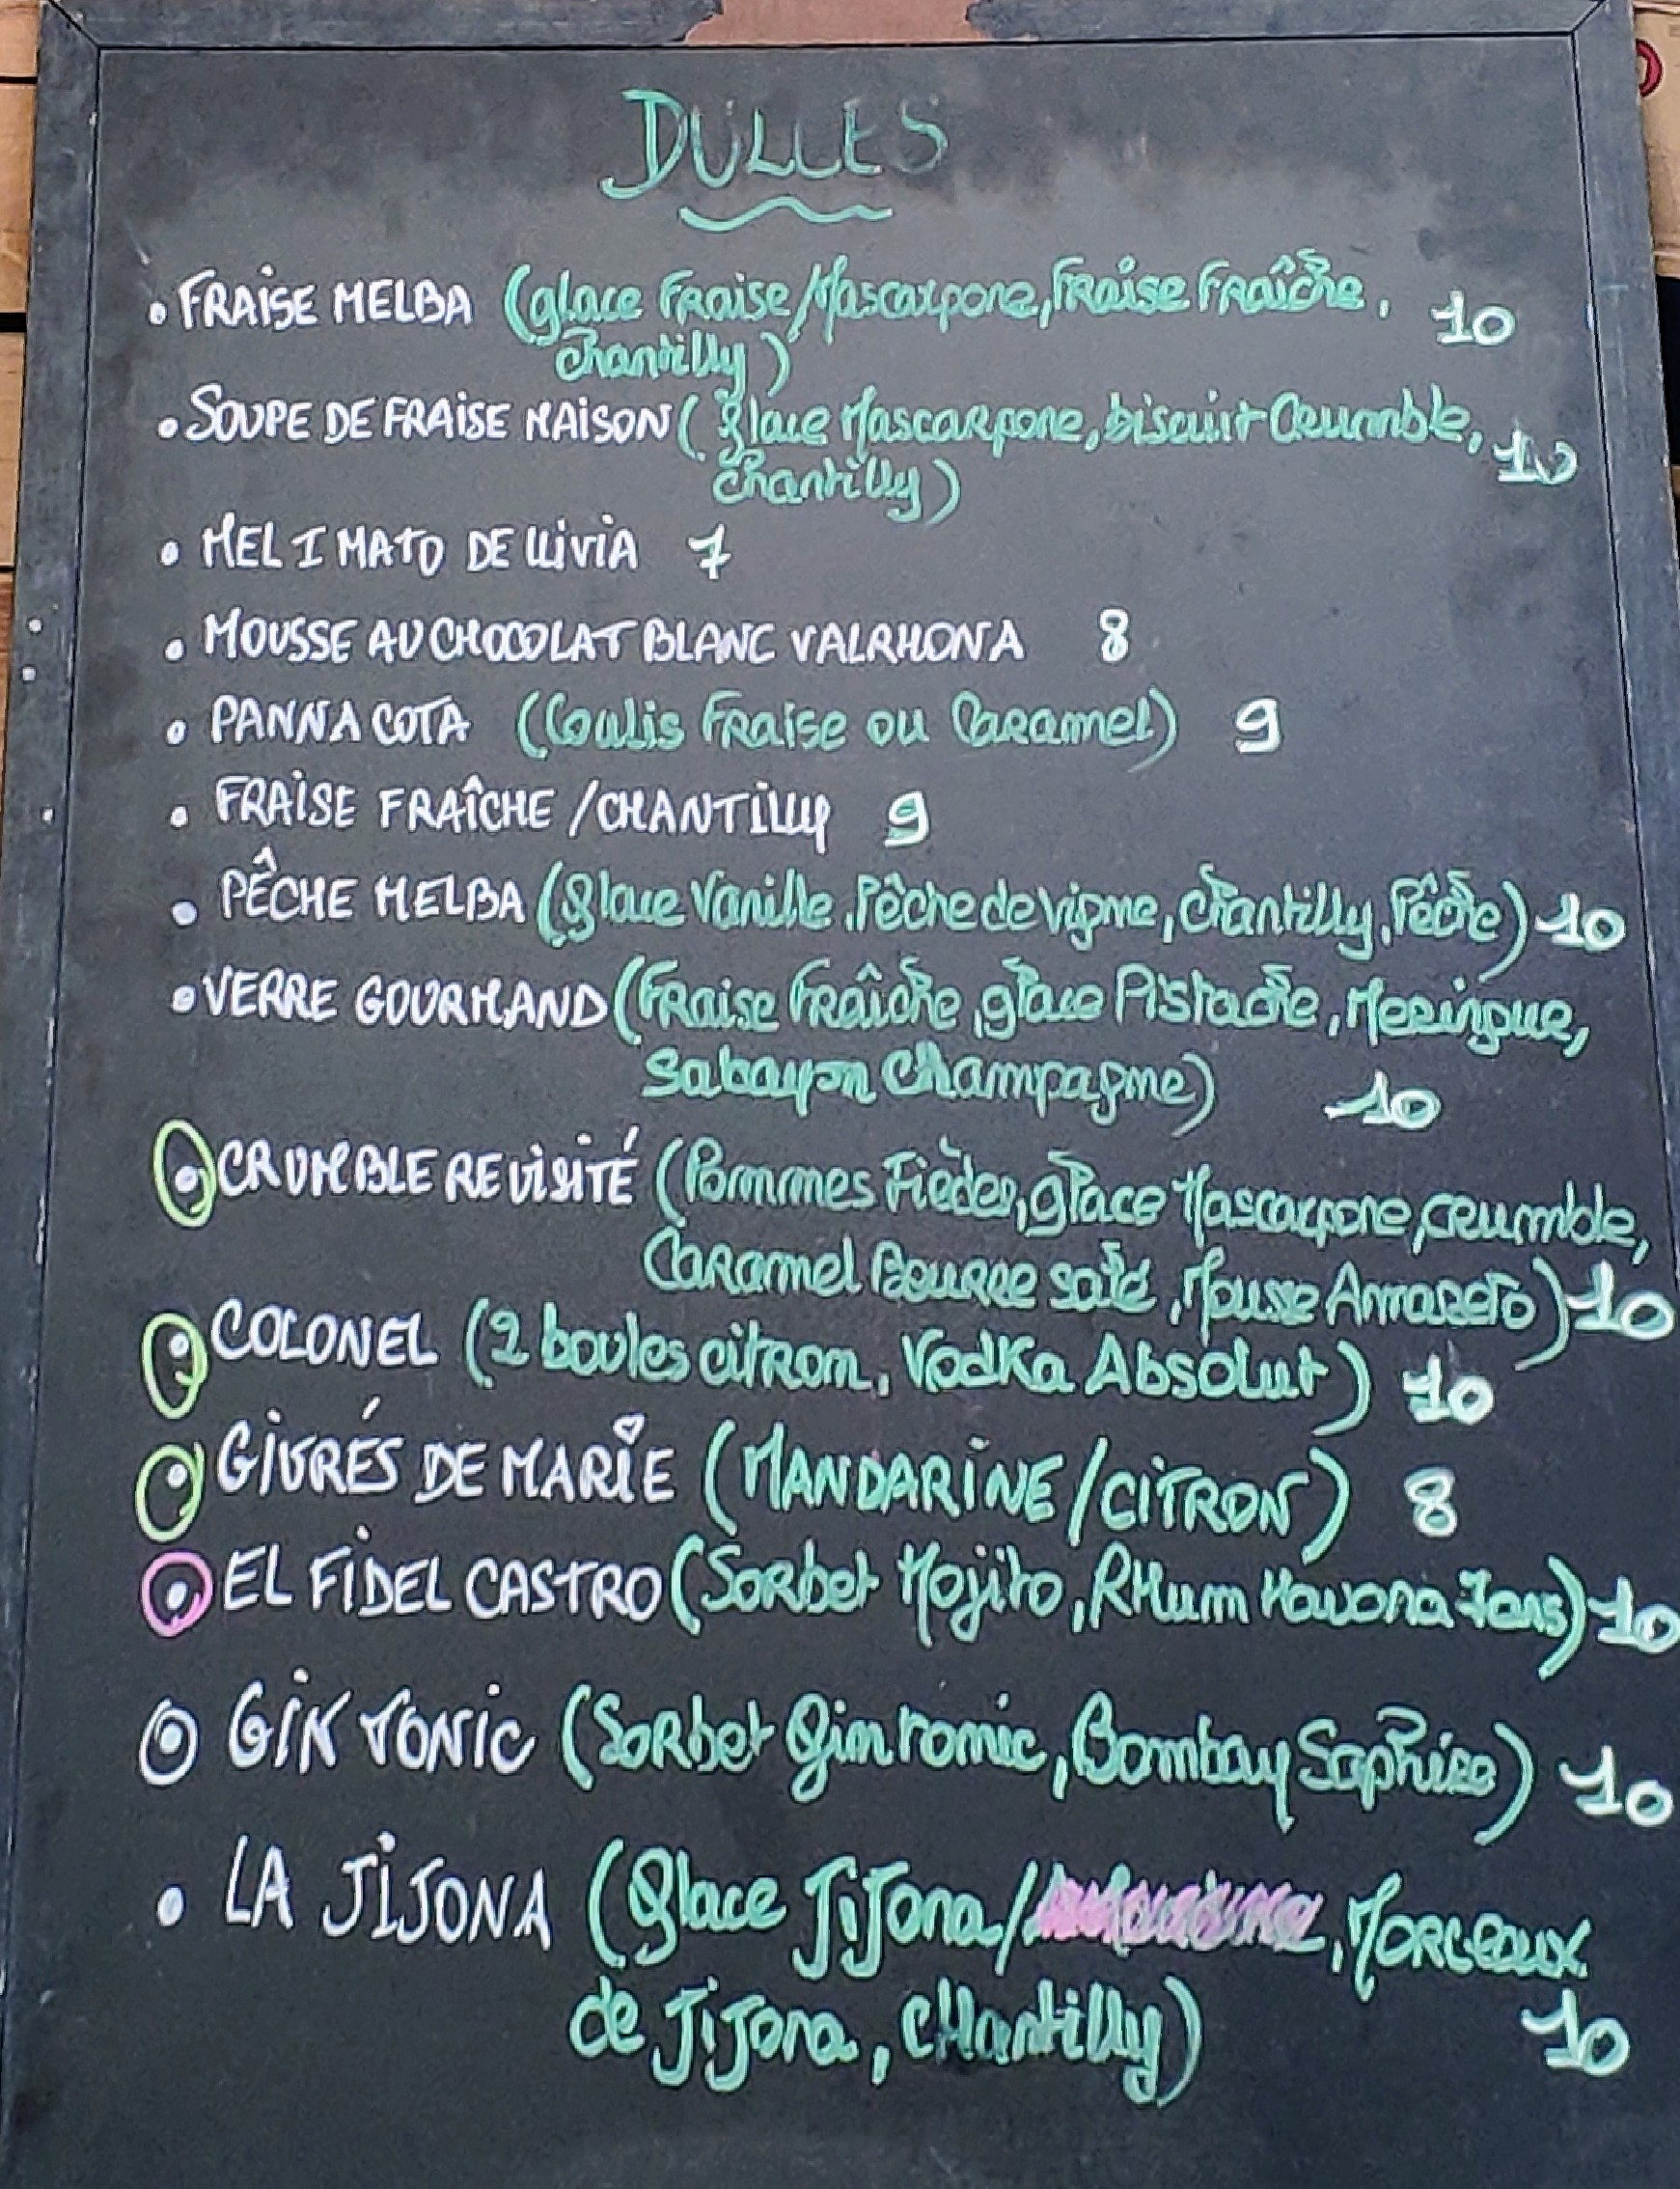 DULCES
• FRAISE MELBA (glace Fraise/Mascarpone, Fraise Fraîche, 10
chantilly)
• SOUPE DE FRAISE MAISON (glace Mascarpone, biscuit Crumble, 10
chantilly)
• MEL I MATO DE LLIVIA 7
• MOUSSE AU CHOCOLAT BLANC VALRHONA 8
• PANNA COTA (Coulis Fraise ou Caramel) 9
• FRAISE FRAÎCHE / CHANTILLY 9
• PÊCHE MELBA (glace Vanille, Pêche de vigne, chantilly, Pêche) 10
• VERRE GOURMAND (Fraise Fraîche, glace Pistache, Meringue,
Sabayon Champagne) 10
• CRUMBLE REVISITÉ (Pommes Tièdes, glace Mascarpone, crumble,
Caramel Beurre salé, Mousse Amaretto) 10
• COLONEL (2 boules citron, Vodka Absolut) 10
• GIVRÉS DE MARIE (MANDARINE/CITRON) 8
• EL FIDEL CASTRO (Sorbet Mojito, Rhum Havana 7ans) 10
• GIN TONIC (Sorbet Gin tonic, Bombay Saphire) 10
• LA JIJONA (Glace Jijona/ , Morceaux
de Jijona, Chantilly) 10